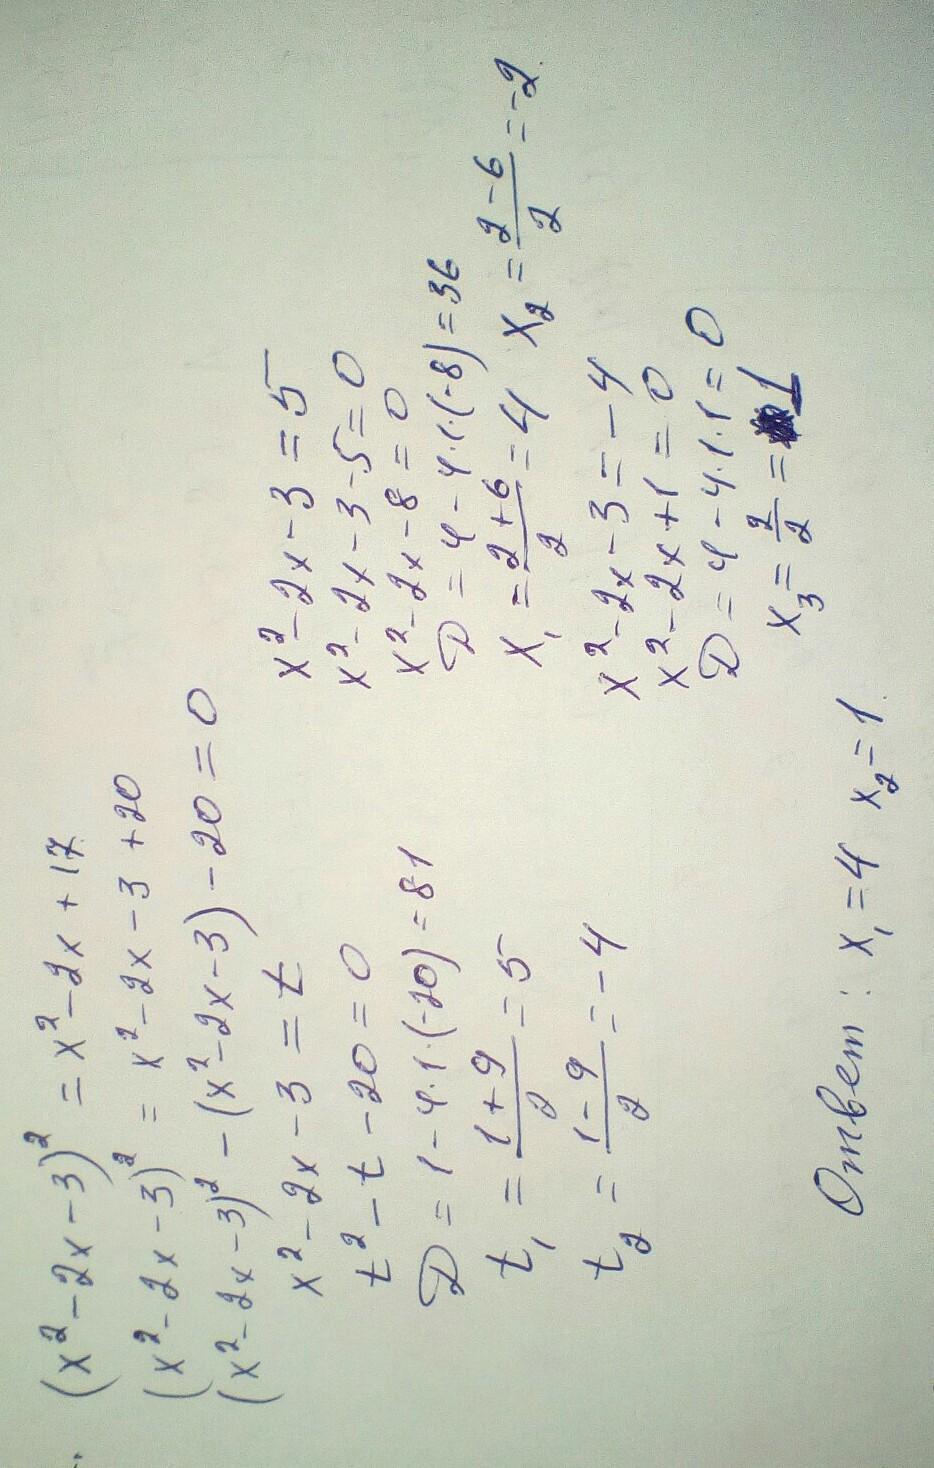 (x² - 2x - 3)² = x² - 2x + 17
(x² - 2x - 3)² = x² - 2x - 3 + 20
(x² - 2x - 3)² - (x² - 2x - 3) - 20 = 0
x² - 2x - 3 = t
t² - t - 20 = 0
D = 1 - 4·1·(-20) = 81
t₁ = (1 + 9)/2 = 5
t₂ = (1 - 9)/2 = -4
x² - 2x - 3 = 5
x² - 2x - 3 - 5 = 0
x² - 2x - 8 = 0
D = 4 - 4·1·(-8) = 36
x₁ = (2 + 6)/2 = 4 x₂ = (2 - 6)/2 = -2
x² - 2x - 3 = -4
x² - 2x + 1 = 0
D = 4 - 4·1·1 = 0
x₃ = 2/2 = 1
Ответ: x₁ = 4 x₂ = 1